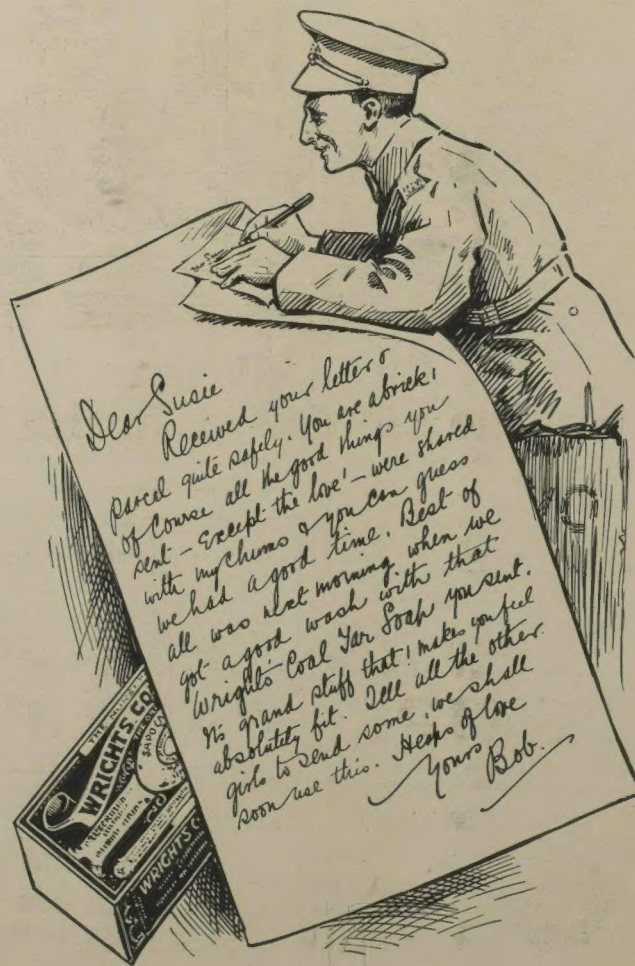 Dear Susie
Received your letter &
parcel quite safely. You are a brick!
of course all the good things you
sent - Except the love! - were shared
with my chums & you can guess
we had a good time. Best of
all was next morning when we
got a good wash with that
Wright's Coal Tar Soap you sent.
It's grand stuff that! makes you feel
absolutely fit. Tell all the other
girls to send some, we shall
soon use this. Heaps of love
Yours
Bob.
WRIGHTS CO
WRIGHTS C